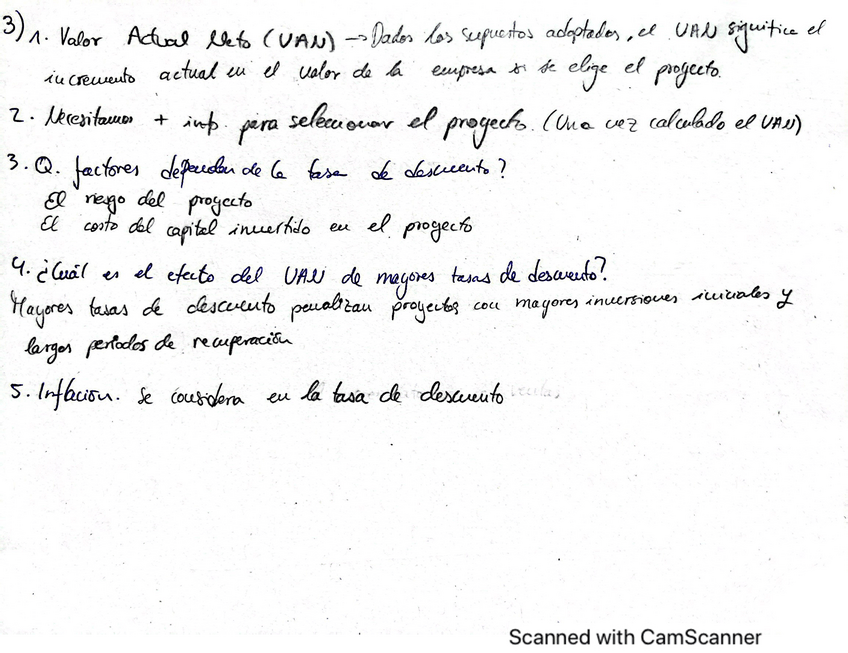 3) 1. Valor Actual Neto (VAN) → Dados los supuestos adoptados, el VAN significa el
incremento actual en el valor de la empresa si se elige el proyecto.
2. Necesitamos + inf. para seleccionar el proyecto. (Una vez calculado el VAN)
3. Q. factores dependen de la tasa de descuento?
El riesgo del proyecto
El costo del capital invertido en el proyecto
4. ¿Cuál es el efecto del VAN de mayores tasas de descuento?
Mayores tasas de descuento penalizan proyectos con mayores inversiones iniciales y
largos periodos de recuperación
5. Inflación. Se considera en la tasa de descuento
Scanned with CamScanner